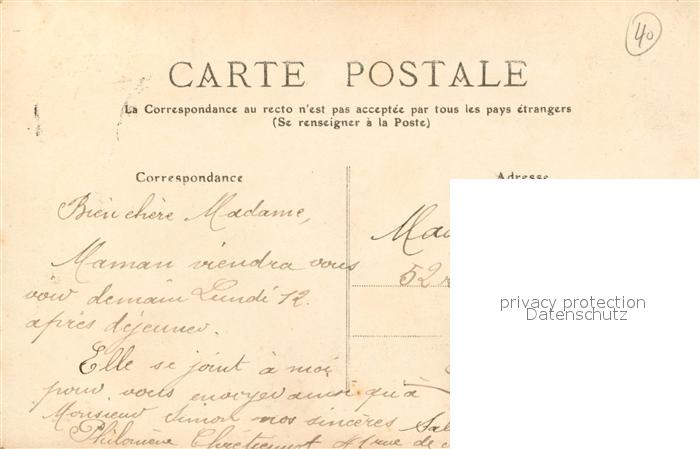 40
CARTE POSTALE
La Correspondance au recto n'est pas acceptée par tous les pays étrangers
(Se renseigner à la Poste)
Correspondance
Adresse
Bien chère Madame,
Maman viendra vous
voir demain Lundi 12
après déjeuner.
Elle se joint à moi
pour vous envoyer ainsi qu'à
Monsieur Simon nos sincères Sal
Philomène 41 rue de
Mad
52 r
privacy protection
Datenschutz